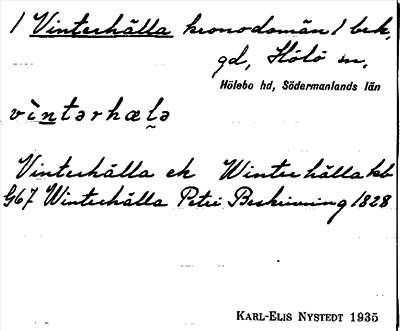 1 Vinterhälla kronodomän 1 brk,
gd, Hölö sn,
Hölebo hd, Södermanlands län
vìntərhæl̬ə
Vinterhälla ek Winterhälla kb
G67 Winterhälla Petri Beskrivning 1828
KARL-ELIS NYSTEDT 1935